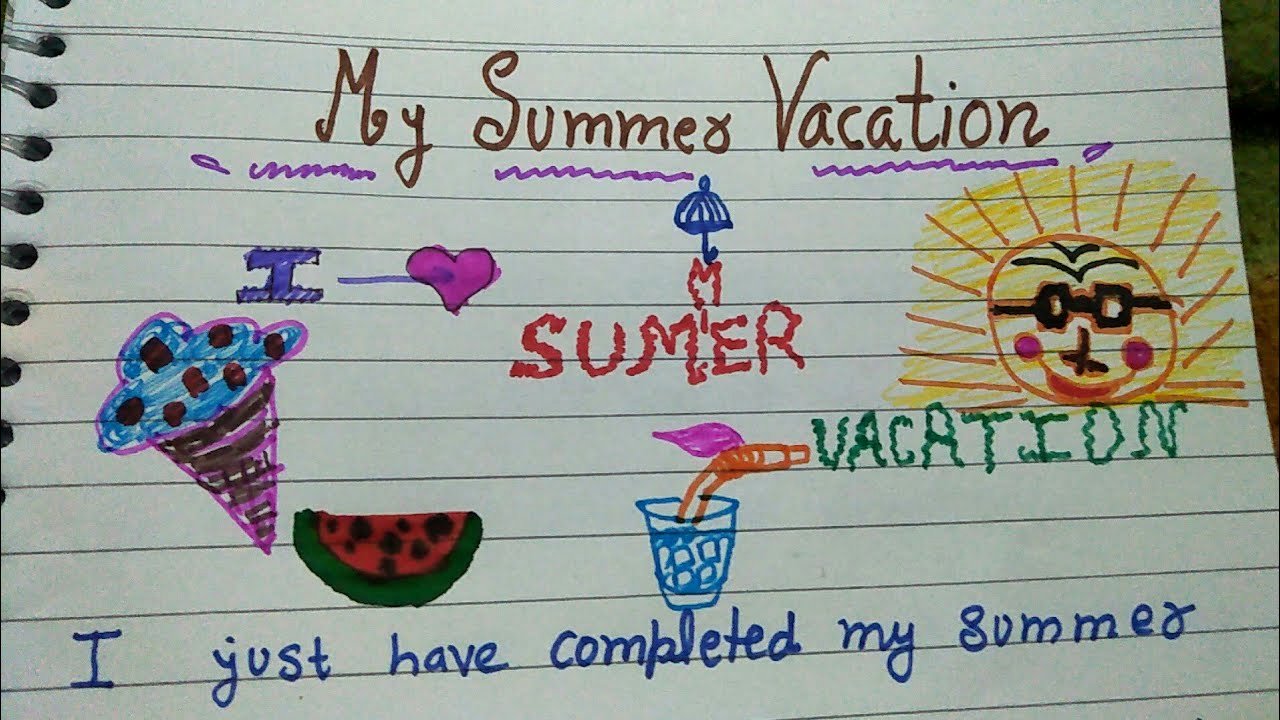 My Summer Vacation
I
M
SUM'ER
VACATION
I just have completed my summer